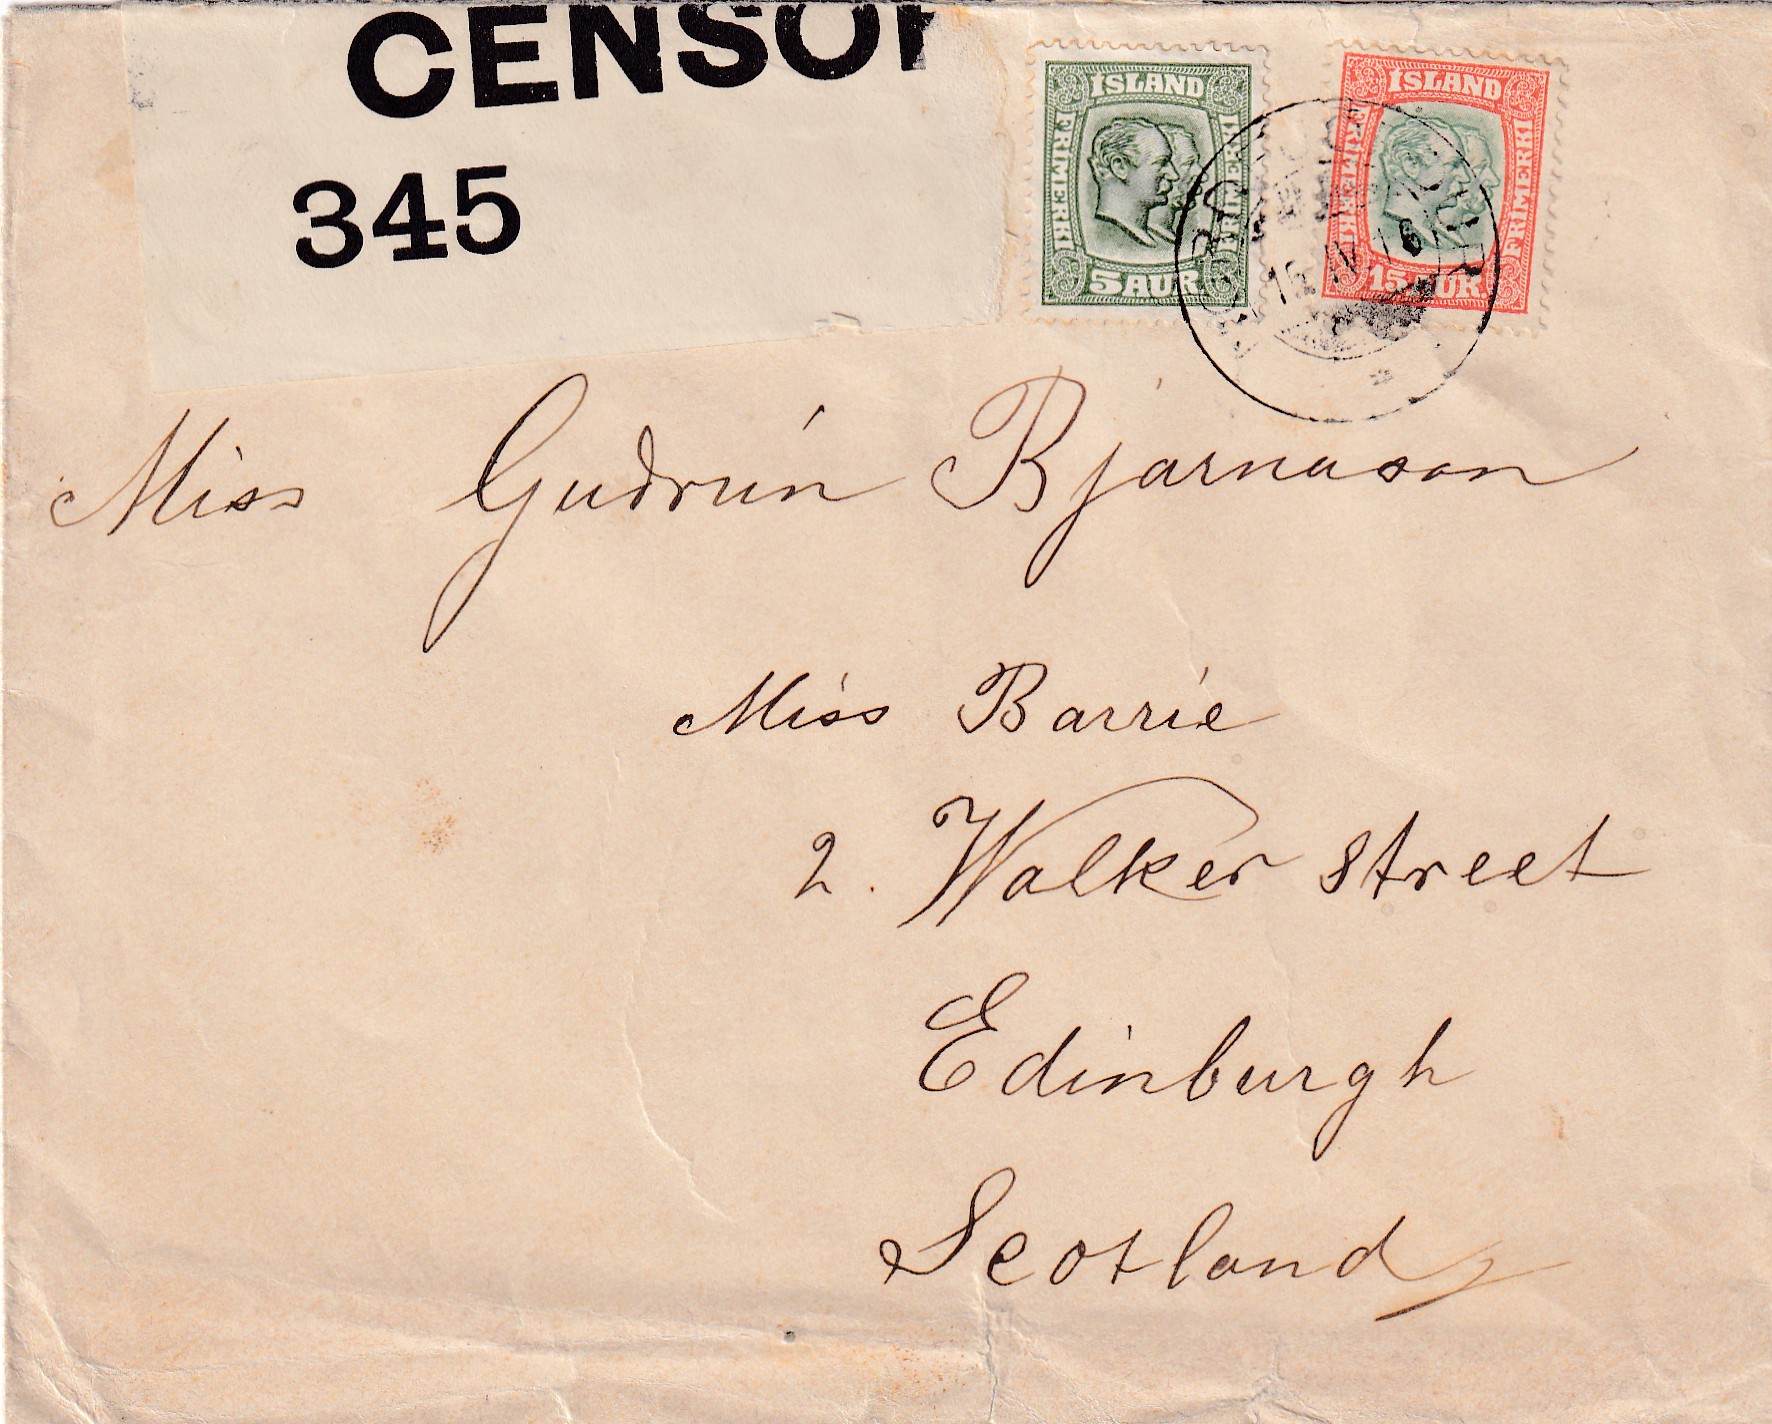 CENSOR
345
ÍSLAND
FRÍMERKI
FRÍMERKI
5 AUR.
ÍSLAND
FRÍMERKI
FRÍMERKI
15 AUR.
Miss Gudrún Bjarnason
Miss Barrie
2. Walker street
Edinburgh
Scotland